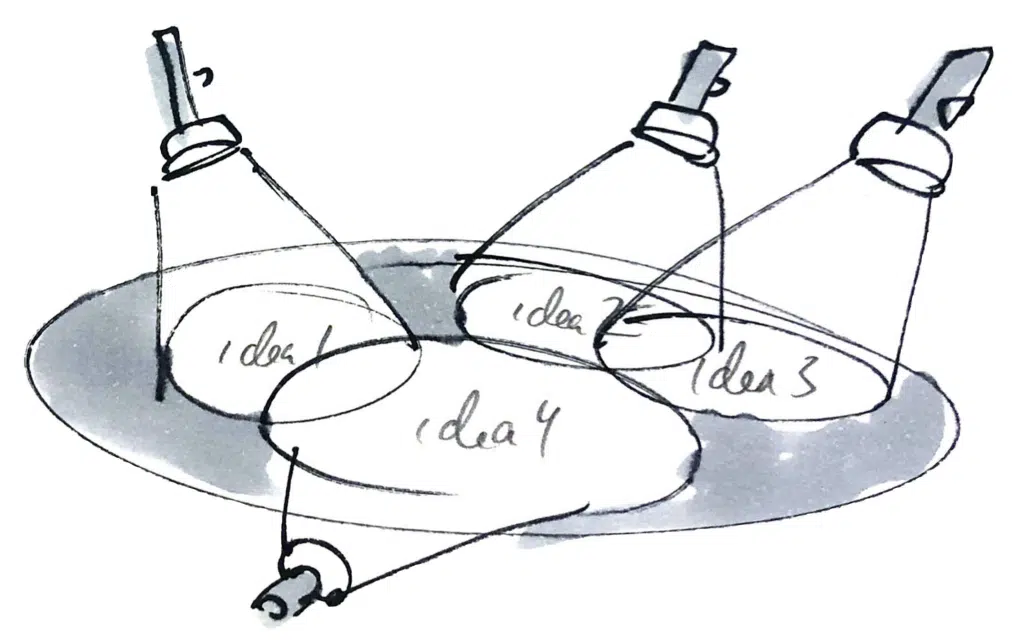 idea 1
idea 2
idea 3
idea 4